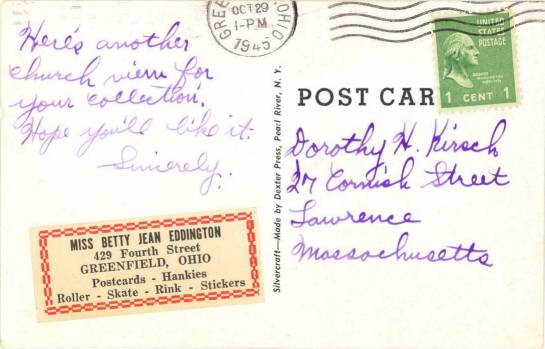 GREE OHIO
OCT 29
1-PM
1945
UNITED
STATES
POSTAGE
GEORGE
WASHINGTON
1 CENT 1
Here's another
church view for
your collection.
Hope you'll like it.
Sincerely,
POST CAR
Dorothy H. Kirsch
27 Cornish Street
Lawrence
Massachusetts
Silvercraft—Made by Dexter Press, Pearl River, N. Y.
MISS BETTY JEAN EDDINGTON
429 Fourth Street
GREENFIELD, OHIO
Postcards - Hankies
Roller - Skate - Rink - Stickers